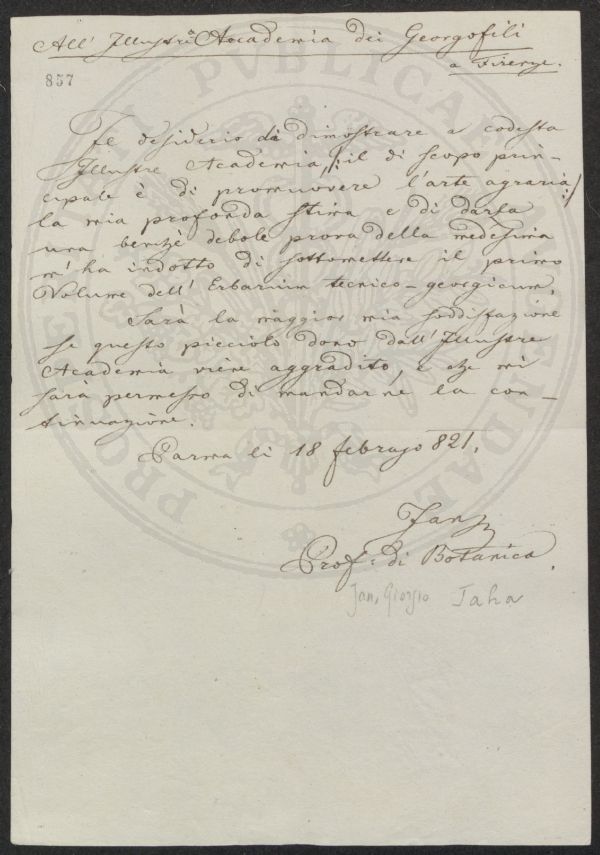 All' Illustr.ª Accademia dei Georgofili
a Firenze.
857
Il desiderio di dimostrare a codesta
Illustre Academia, /: il di scopo prin-
cipale è di promuovere l'arte agraria :/
la mia profonda stima e di darla
una benzè debole prova della medesima
m'ha indotto di sottomettere il primo
Volume dell' Erbarium tecnico-georgicum,
Sarà la maggior mia soddisfazione
se questo picciolo dono dall' Illustre
Academia viene aggradito, e che mi
sarà permesso di mandarne la con-
tinuazione.
Parma li 18 febrajo 821.
Jan
Prof: di Botanica.
Jan, Giorgio Jaha
PROSPERITATI PVBLICAE AVGENDAE